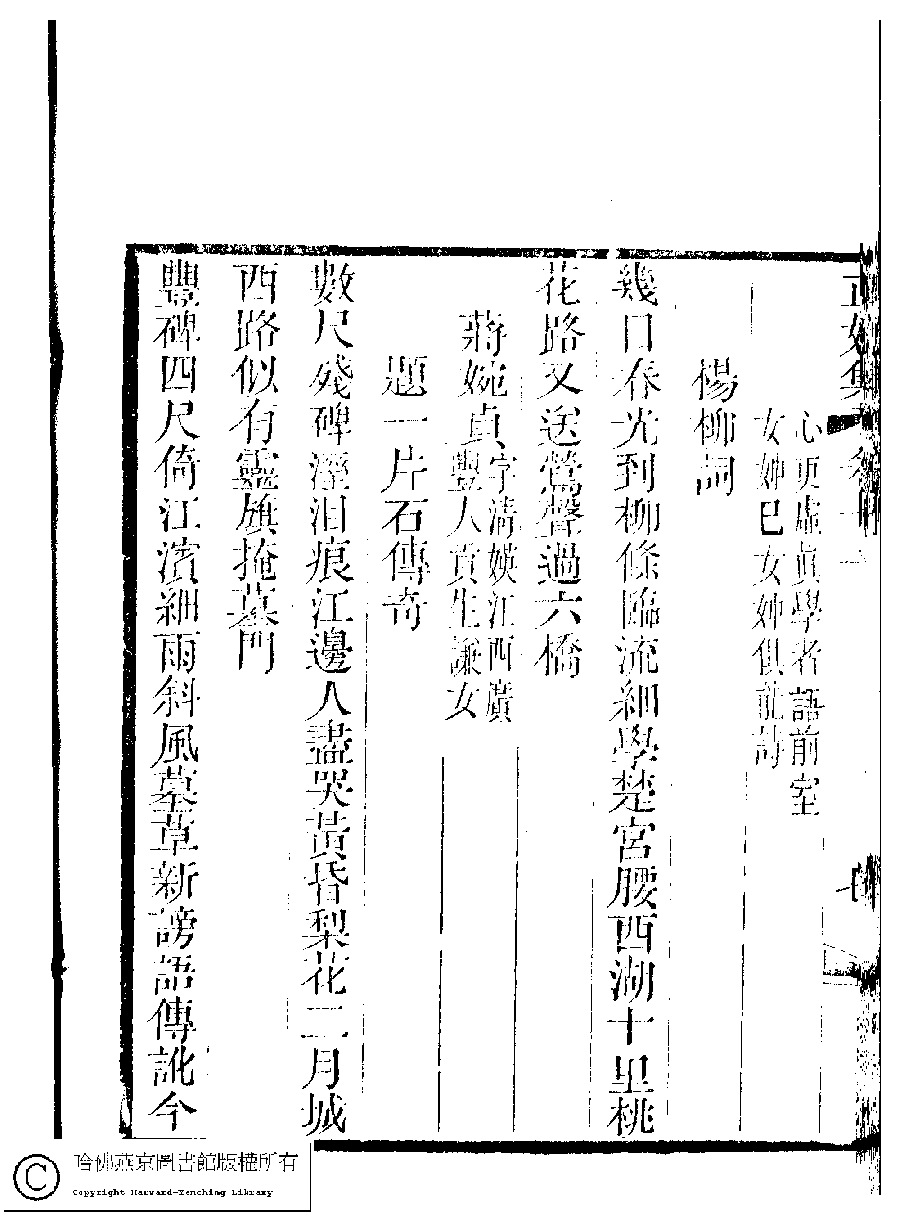 正始集 卷十一
心更虛眞學者語前室
女姊巳女姊俱能詩
楊柳詞
幾日春光到柳條臨流細學楚宮腰西湖十里桃
花路又送鶯聲過六橋
蔣婉貞字清媖江西廣
豐人貢生謙女
題一片石傳奇
數尺殘碑溼淚痕江邊人盡哭黃昏梨花二月城
西路似有靈旗掩墓門
豐碑四尺倚江濱細雨斜風墓草新謗語傳訛今
哈佛燕京圖書館版權所有
Copyright Harvard-Yenching Library